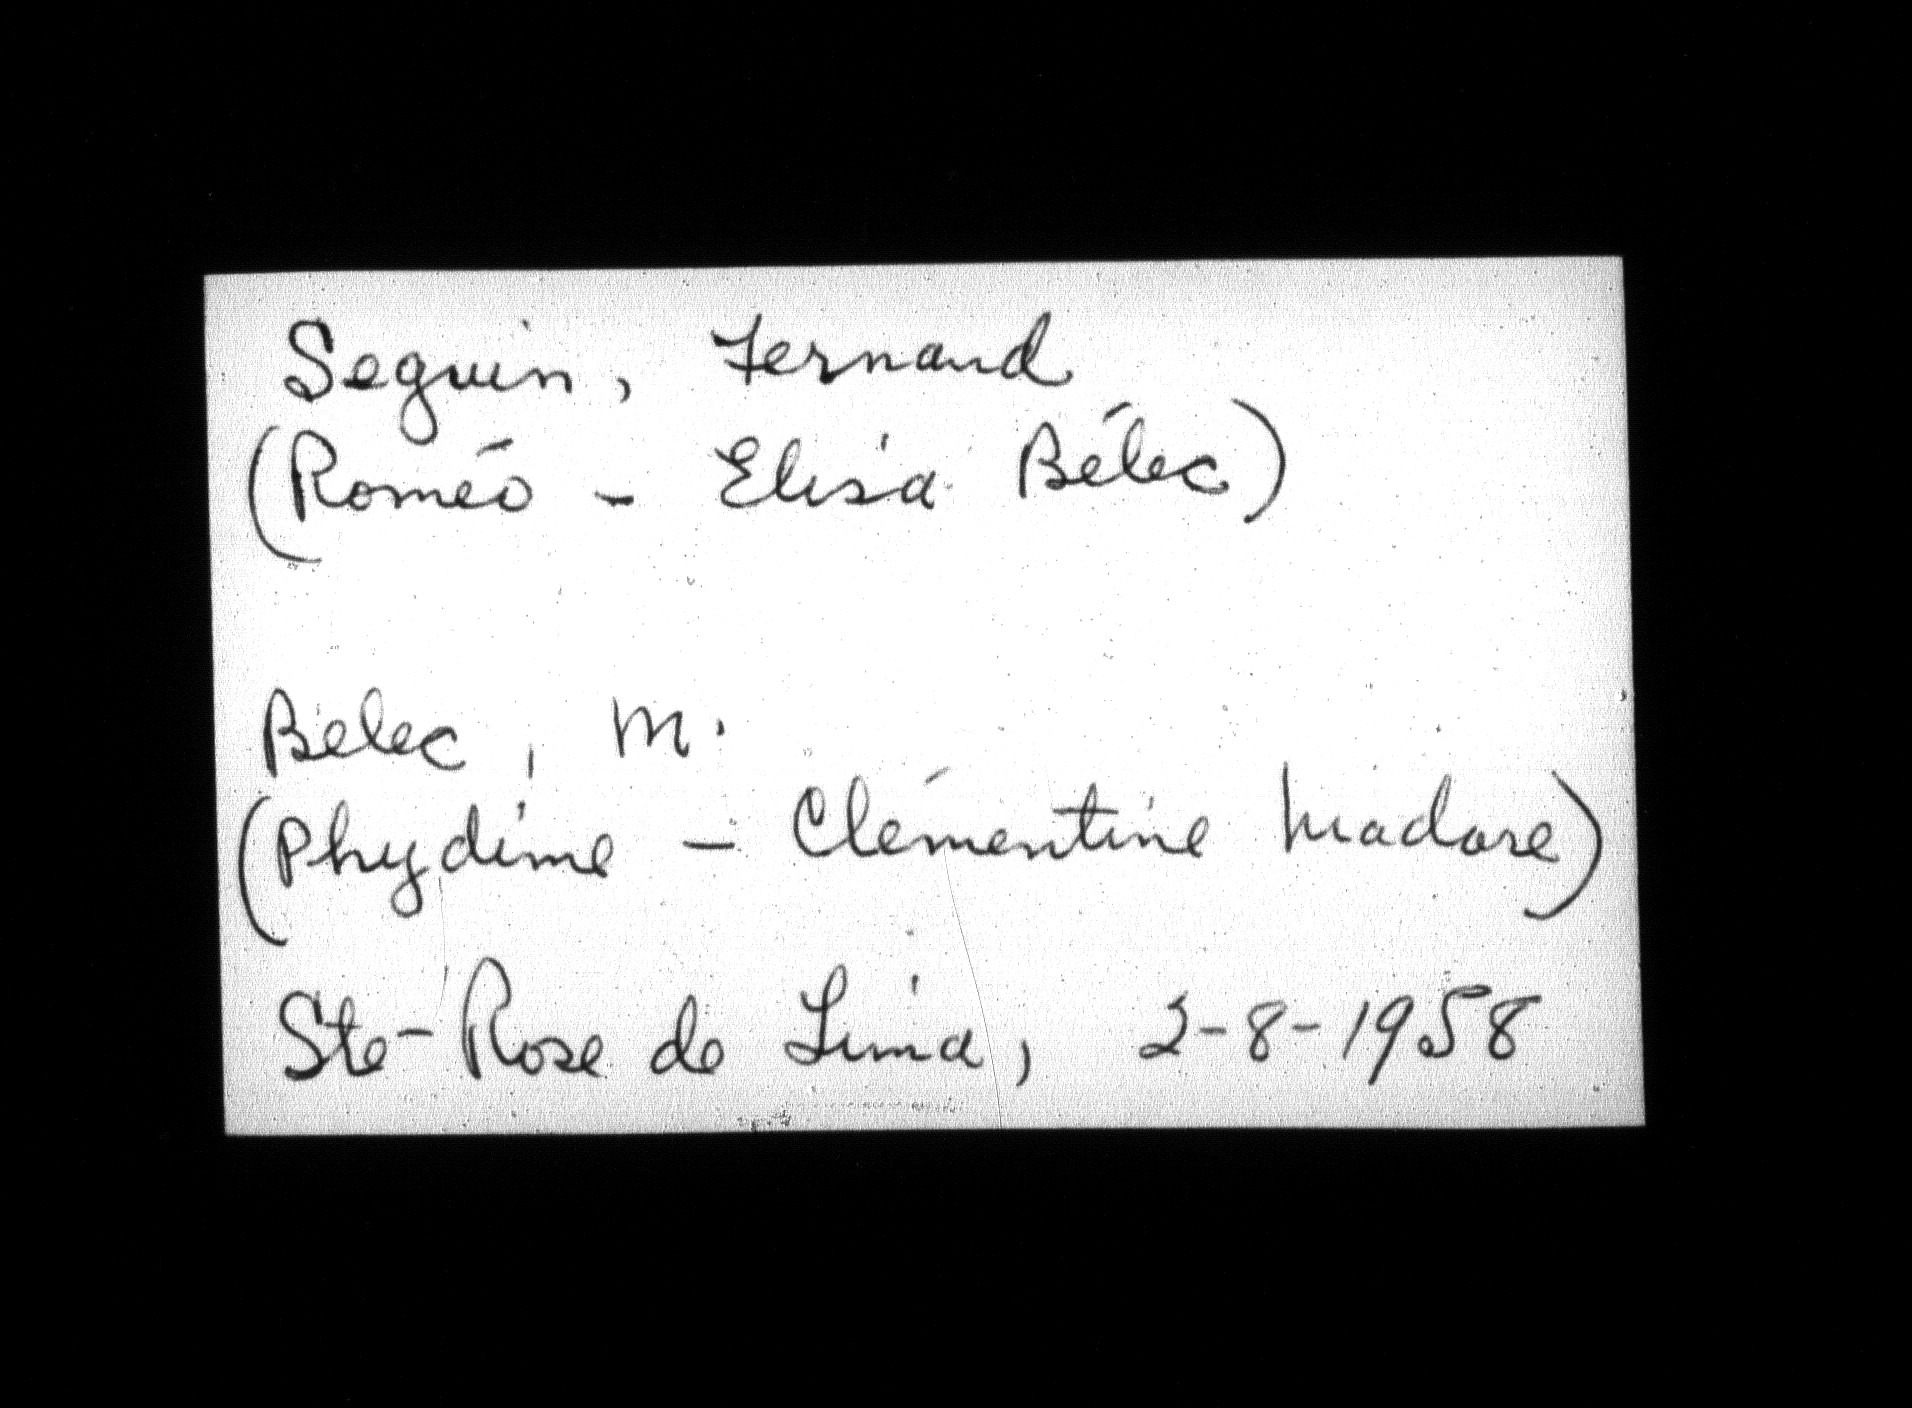 Seguin, Fernand
(Roméo - Elisa Bélec)
Belec, M.
(Phydime - Clémentine Madore)
Ste-Rose de Lima, 2-8-1958